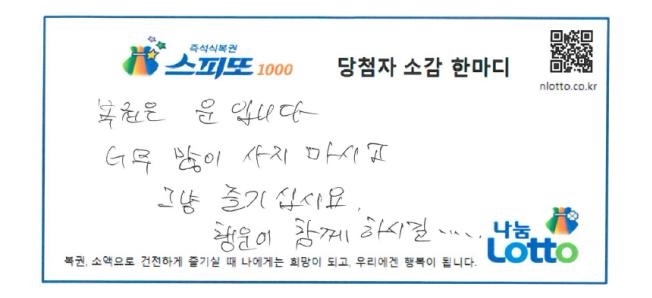 즉석식복권
스피또 1000
당첨자 소감 한마디
nlotto.co.kr
복권은 운 입니다
너무 많이 사지 마시고
그냥 즐기십시요.
행운이 함께 하시길.....
나눔
Lotto
복권, 소액으로 건전하게 즐기실 때 나에게는 희망이 되고, 우리에겐 행복이 됩니다.